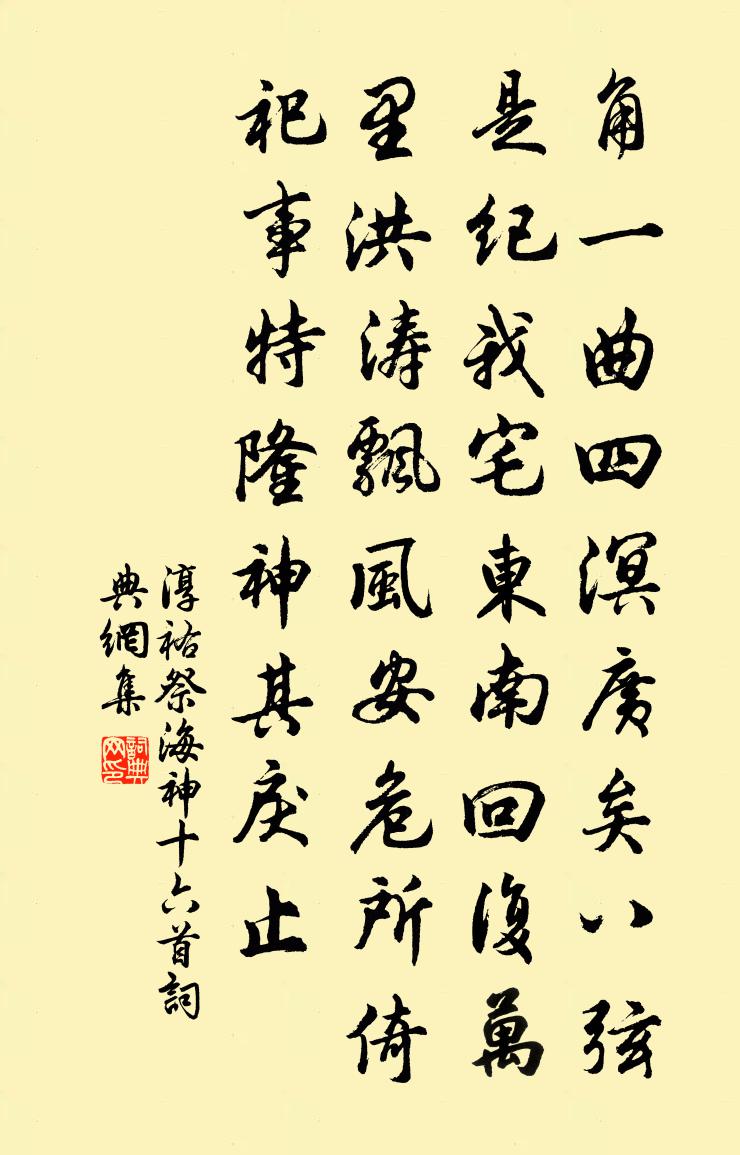 角一曲四溟廣矣八弦
是纪我宅東南回復萬
里洪涛飄風安危所倚
祀事特隆神其戾止
淳祐祭海神十六首詞
典網集
詞典网印